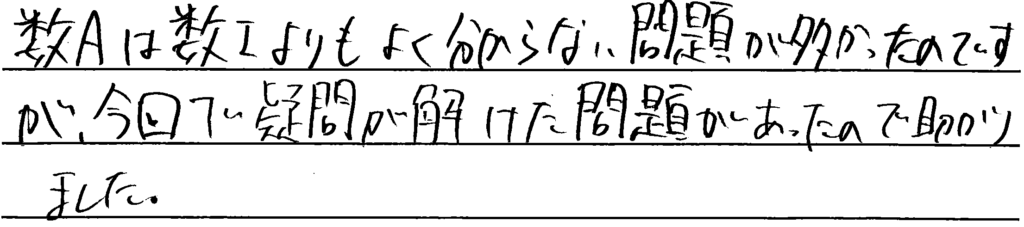 数Aは数Iよりもよく分からない問題が多かったのです
が、今回で疑問が解けた問題があったので助かり
ました。